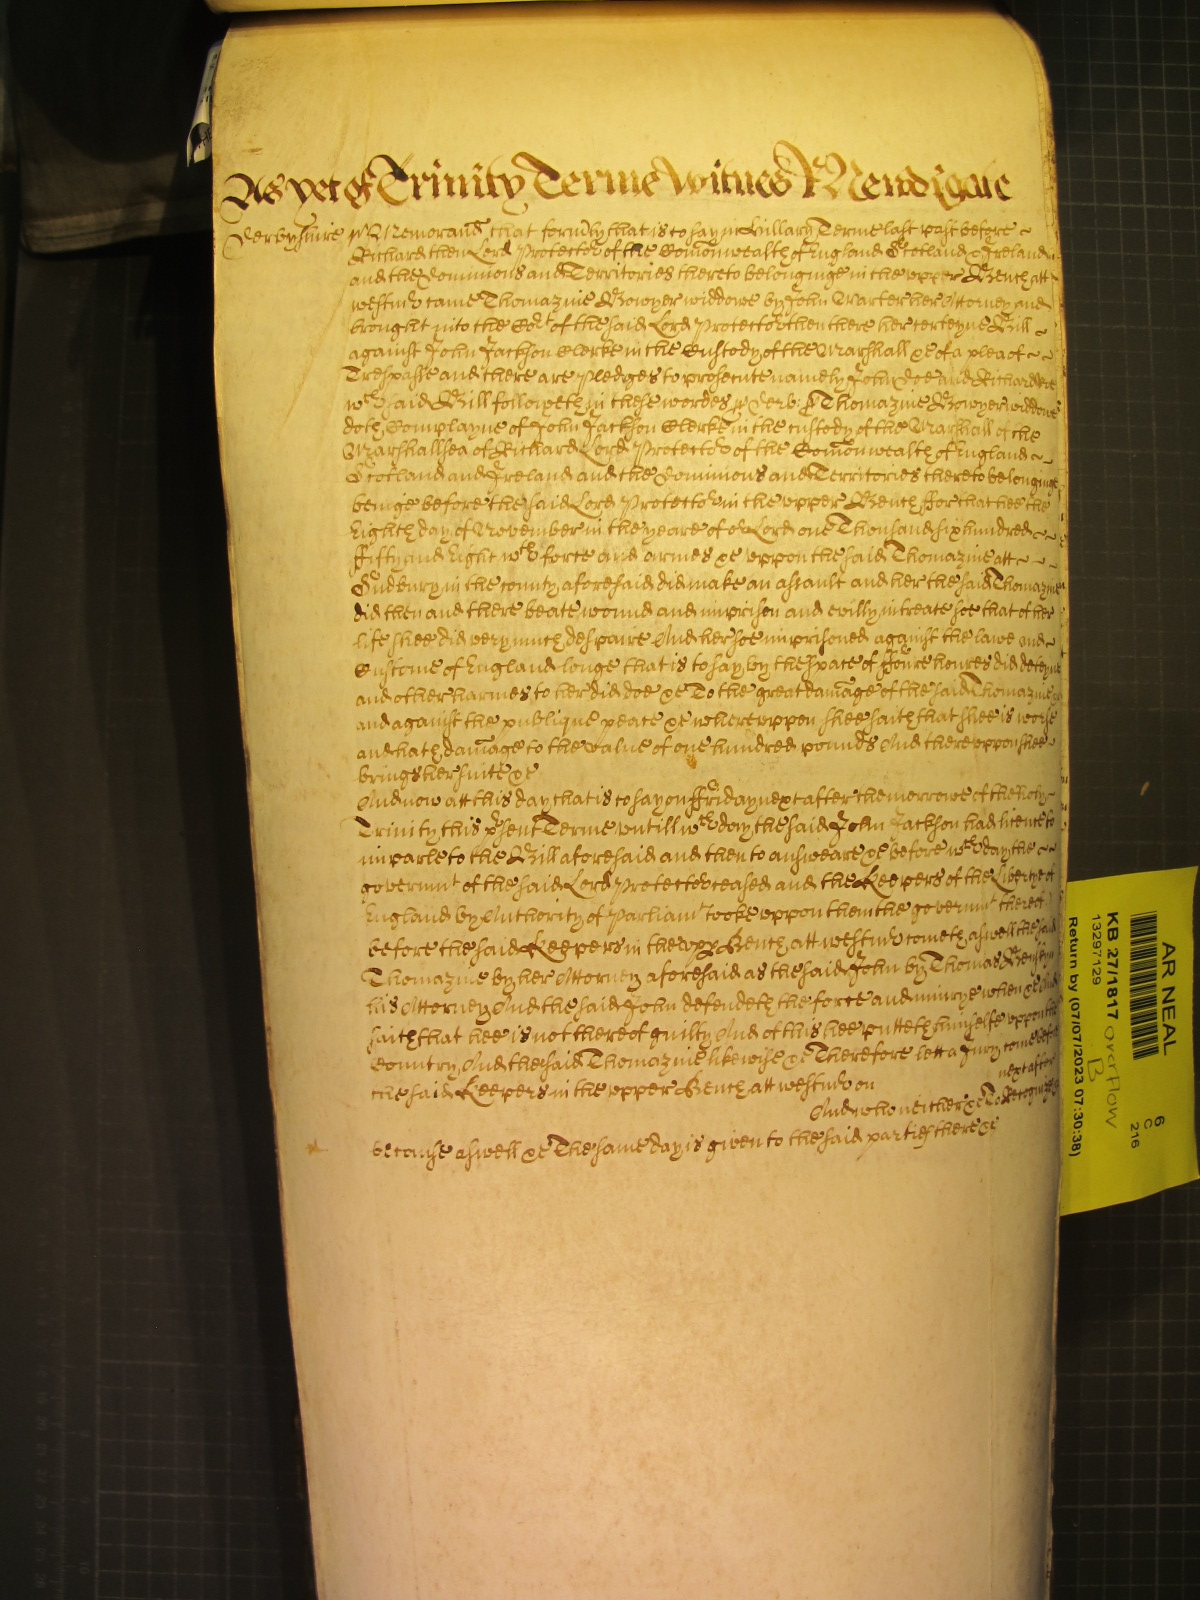 As yet of Trinity Terme Witnes R Newdigate
Derbyshire ss Memorand that formly that is to say in Hillary Terme last past before
Richard then Lord Protector of the Comonwealth of England Scotland & Ireland
and the Dominions and Territories thereto belonginge in the upper Bench att
Westmr came Thomazine Bowyer widdowe by John Warter her Attorney and
brought into the Cort of the said Lord Protector then there her certeyne Bill
against John Jackson Clerke in the Custody of the Marshall &c of a plea of
Trespasse and there are pledges to prosecute namely John Doe and Richard Roe
wch said Bill followeth in these wordes ss Derb: ss Thomazine Bowyer widdowe
doth Complayne of John Jackson Clerke in the custody of the Marshall of the
Marshallsea of Richard Lord Protector of the Comonwealth of England
Scotland and Ireland and the Dominions and Territories thereto belonginge
beinge before the said Lord Protector in the upper Bench ffor that hee the
Eighth day of November in the yeare of or Lord one Thousand six hundred
ffifty and Eight wth force and armes &c uppon the said Thomazine att
Sudbury in the county aforesaid did make an assault and her the said Thomazine
did then and there beate wound and imprison and evilly intreate soe that of her
life shee did very much despaire And her soe imprisoned against the lawe and
Custome of England longe that is to say by the space of ffoure houres did deteyne
and other harmes to her did doe &c To the great damage of the said Thomazine
and against the publique peace &c whereuppon shee saith that shee is worse
and hath damage to the value of one hundred pounds And thereuppon shee
brings her suite &c
And now att this day that is to say on ffriday next after the morrowe of the holy
Trinity this psent Terme untill wch day the said John Jackson had licence to
imparle to the Bill aforesaid and then to answeare &c before wch day the
governmt of the said Lord Protector ceased and the Keepers of the Liberty of
England by Authority of Parliamt tooke uppon them the governmt thereof
before the said Keepers in the upp Bench att Westmr cometh aswell the said
Thomazine by her Attorney aforesaid as the said John by Thomas
his Attorney And the said John defendeth the force and iniurye when &c And
saith that hee is not thereof guilty And of this hee putteth himselfe uppon the
Country And the said Thomazine likewise &c Therefore lett a Jury come before
the said Keepers in the upper Bench att Westmr on next after
And who neither &c To Recognize &c
because aswell &c The same day is given to the said parties there &c
AR NEAL
KB 27/1817 overflow
B
13297129
Return by (07/07/2023 07:30:38)
6
C
216